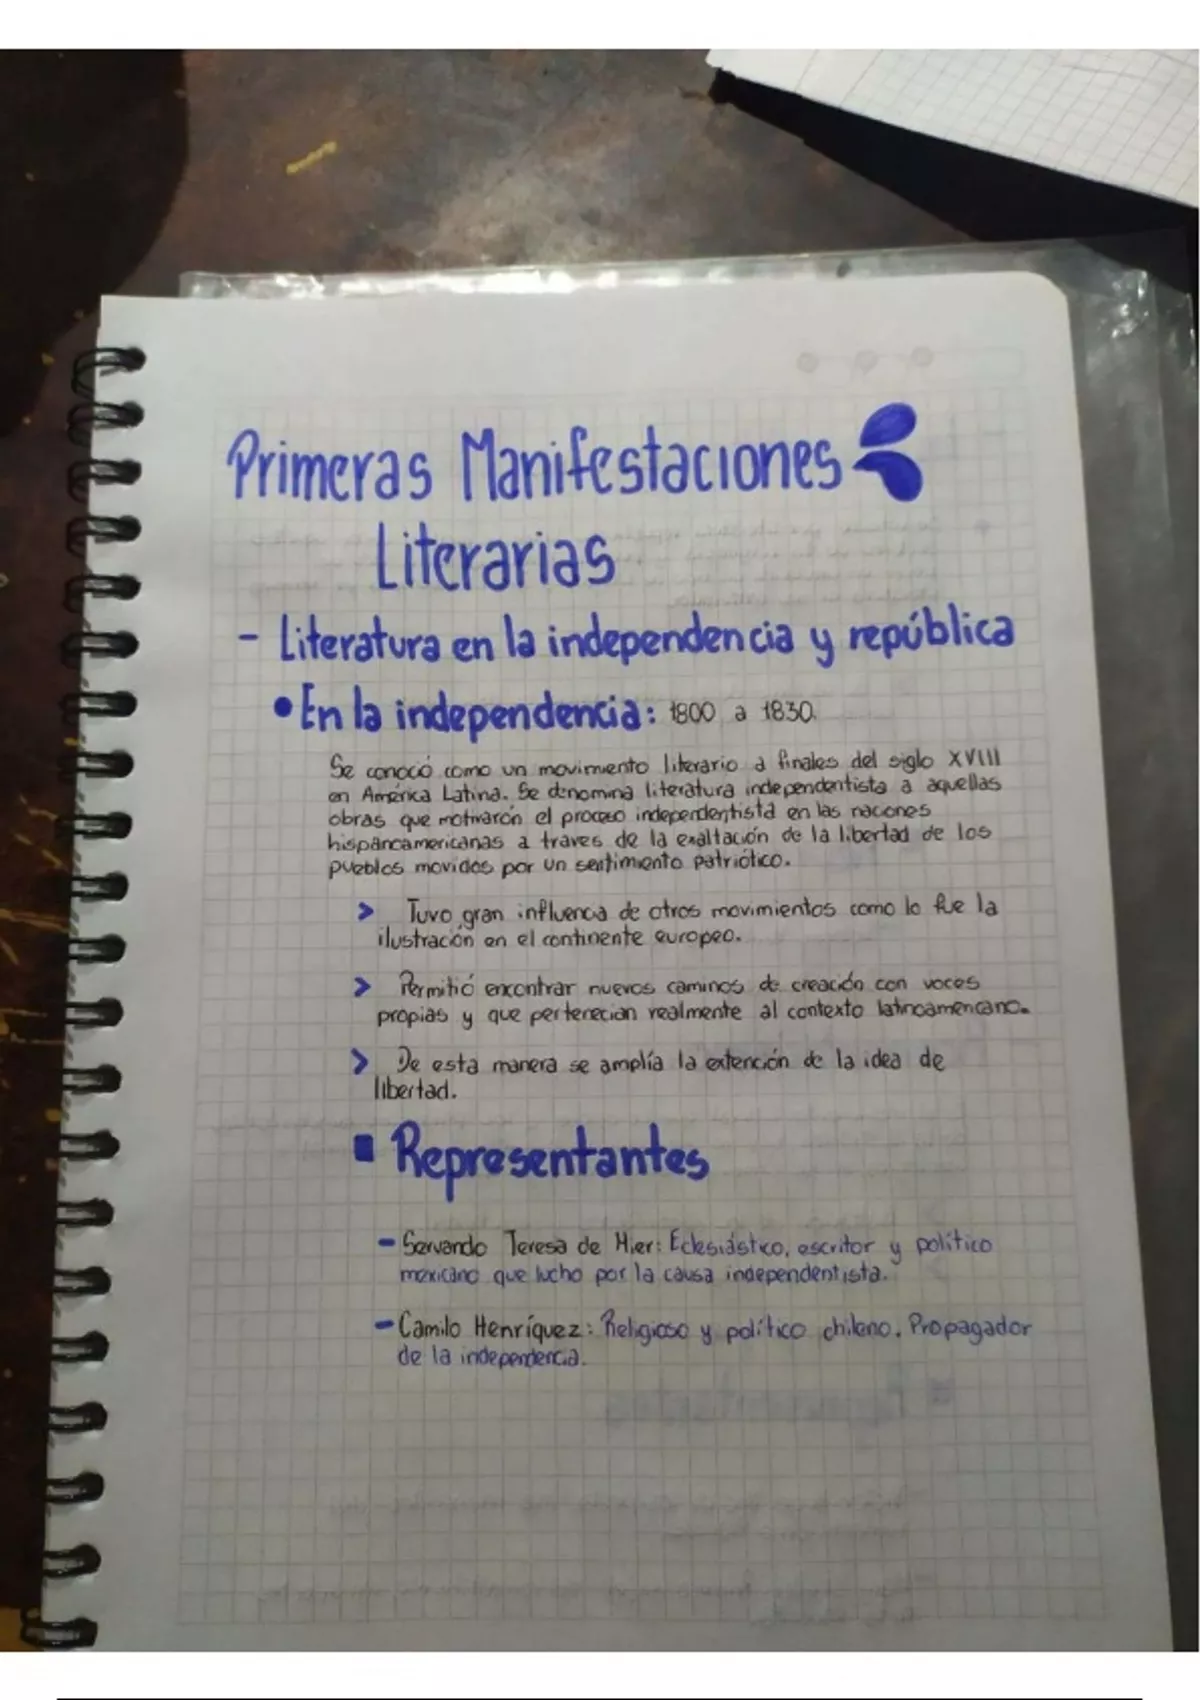 Primeras Manifestaciones
Literarias
- Literatura en la independencia y república
• En la independencia: 1800 a 1830.
Se conoció como un movimiento literario a finales del siglo XVIII
en América Latina. Se denomina literatura independentista a aquellas
obras que motivarón el proceso independentista en las naciones
hispanoamericanas a traves de la exaltación de la libertad de los
pueblos movidos por un sentimiento patriótico.
> Tuvo gran influencia de otros movimientos como lo fue la
ilustración en el continente europeo.
> Permitió encontrar nuevos caminos de creación con voces
propias y que pertenecian realmente al contexto latinoamericano.
> De esta manera se amplía la extención de la idea de
libertad.
▪ Representantes
- Servando Teresa de Mier: Eclesiástico, escritor y político
mexicano que lucho por la causa independentista.
- Camilo Henríquez: Religioso y político chileno. Propagador
de la independencia.